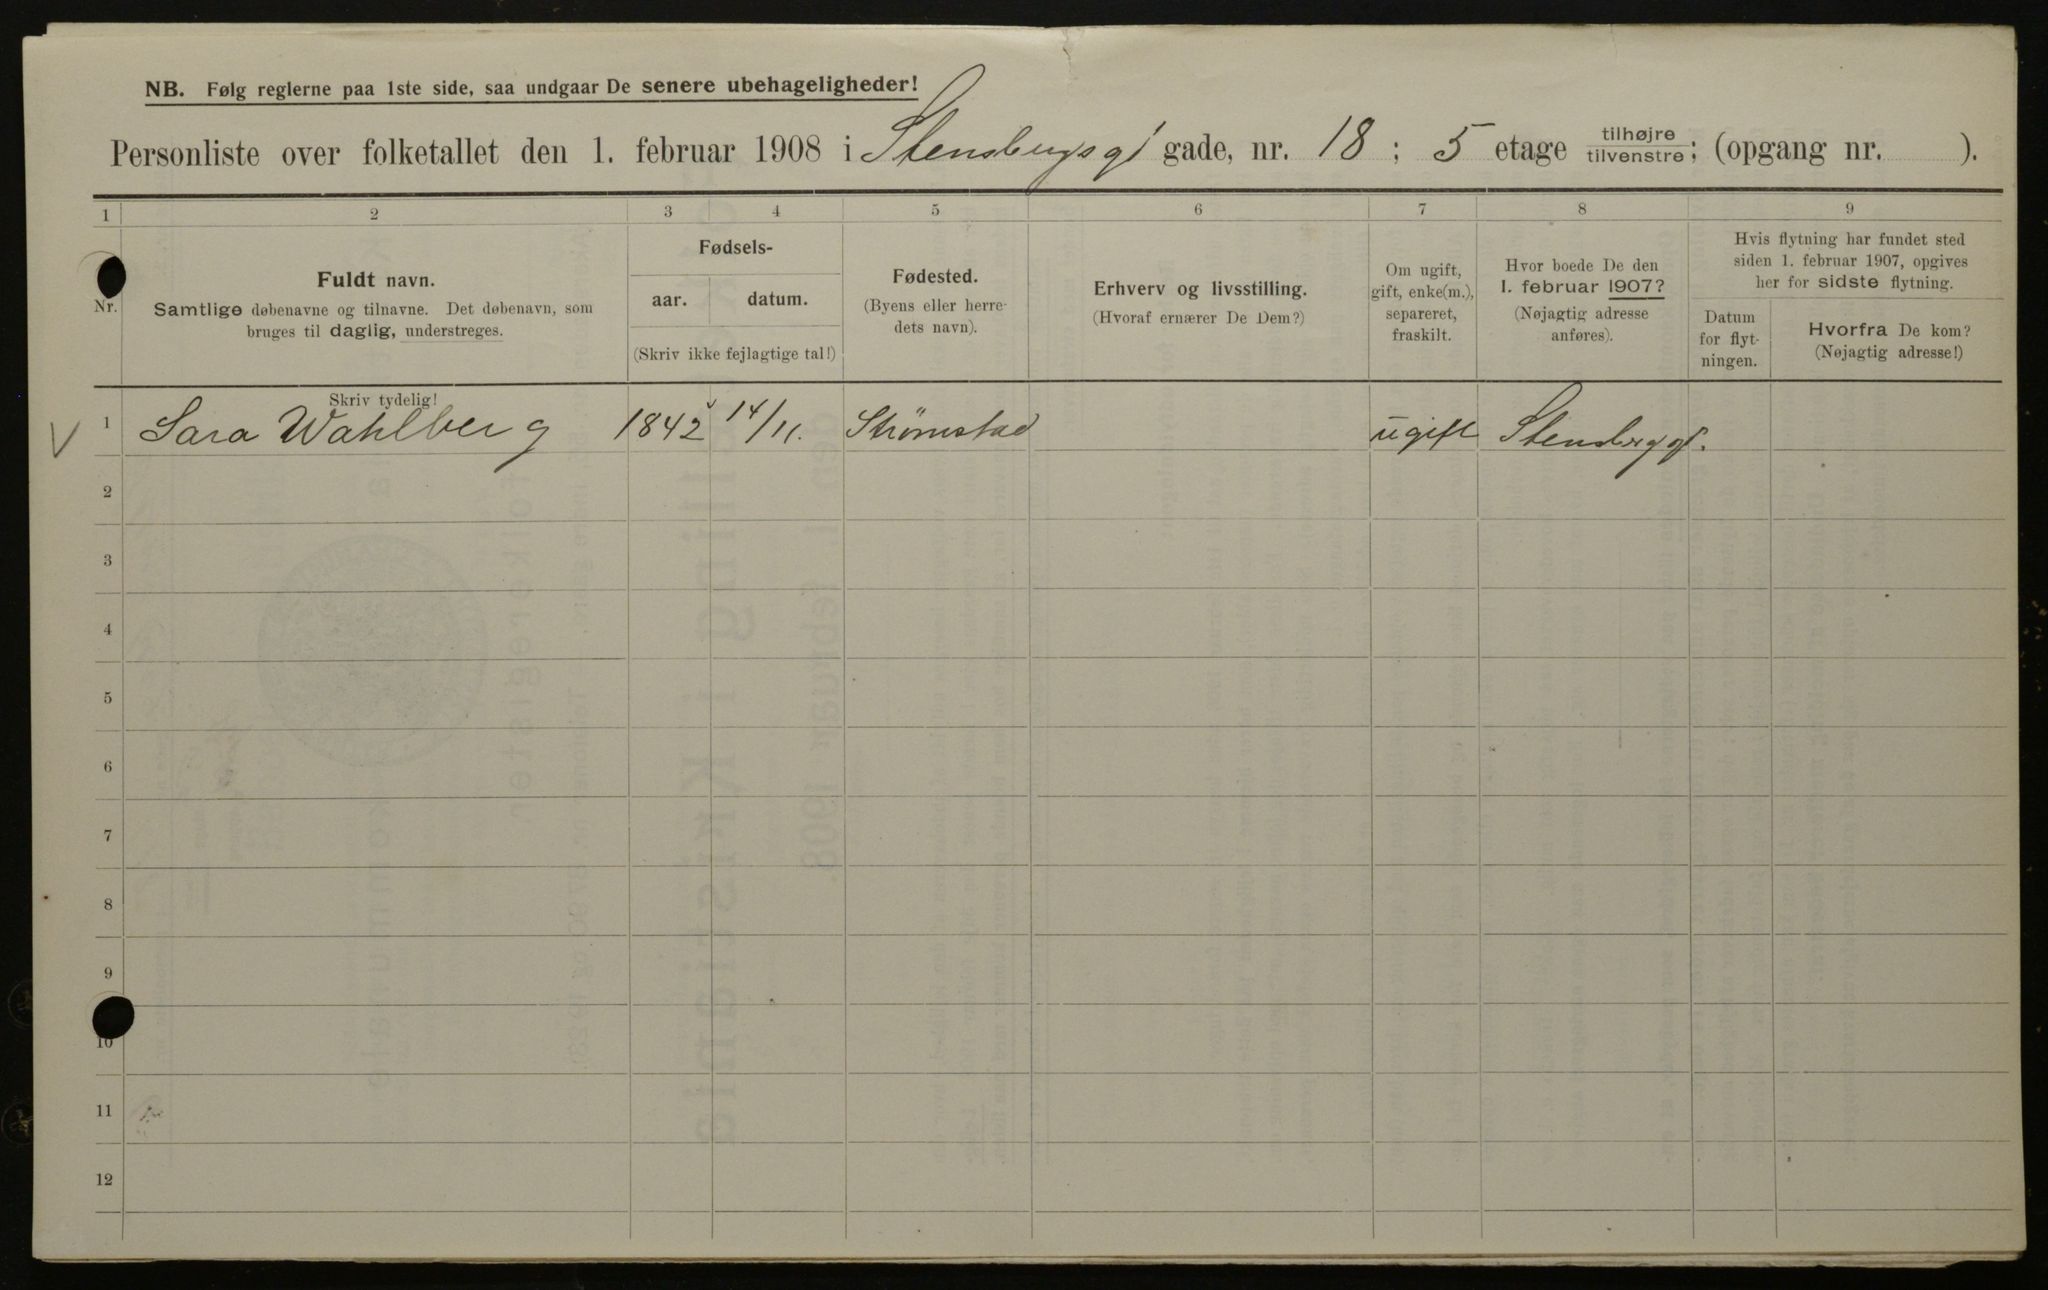 NB. Følg reglerne paa 1ste side, saa undgaar De senere ubehageligheder!
Personliste over folketallet den 1. februar 1908 i Stensbergsgt gade, nr. 18 ; 5 etage tilhøjre tilvenstre; (opgang nr. ).
1 2 3 4 5 6 7 8 9
Nr.
Fuldt navn.
Samtlige døbenavne og tilnavne. Det døbenavn, som
bruges til daglig, understreges.
Skriv tydelig!
Fødsels-
aar. datum.
(Skriv ikke fejlagtige tal!)
Fødested.
(Byens eller herre-
dets navn).
Erhverv og livsstilling.
(Hvoraf ernærer De Dem?)
Om ugift,
gift, enke(m.),
separeret,
fraskilt.
Hvor boede De den
1. februar 1907?
(Nøjagtig adresse
anføres).
Hvis flytning har fundet sted
siden 1. februar 1907, opgives
her for sidste flytning.
Datum
for flyt-
ningen.
Hvorfra De kom?
(Nøjagtig adresse!)
1 Sara Wahlberg 1842 14/11. Strømstad ugift Stensberggt.
2
3
4
5
6
7
8
9
10
11
12